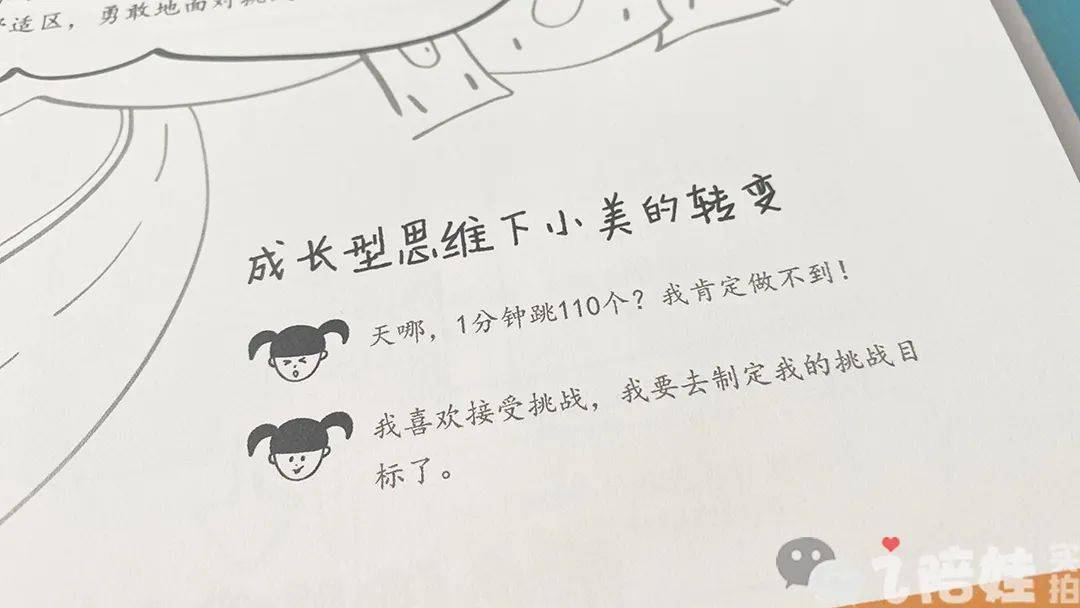 适区，勇敢地面对挑
成长型思维下小美的转变
天哪，1分钟跳110个？我肯定做不到！
我喜欢接受挑战，我要去制定我的挑战目
标了。
i陪娃
实拍